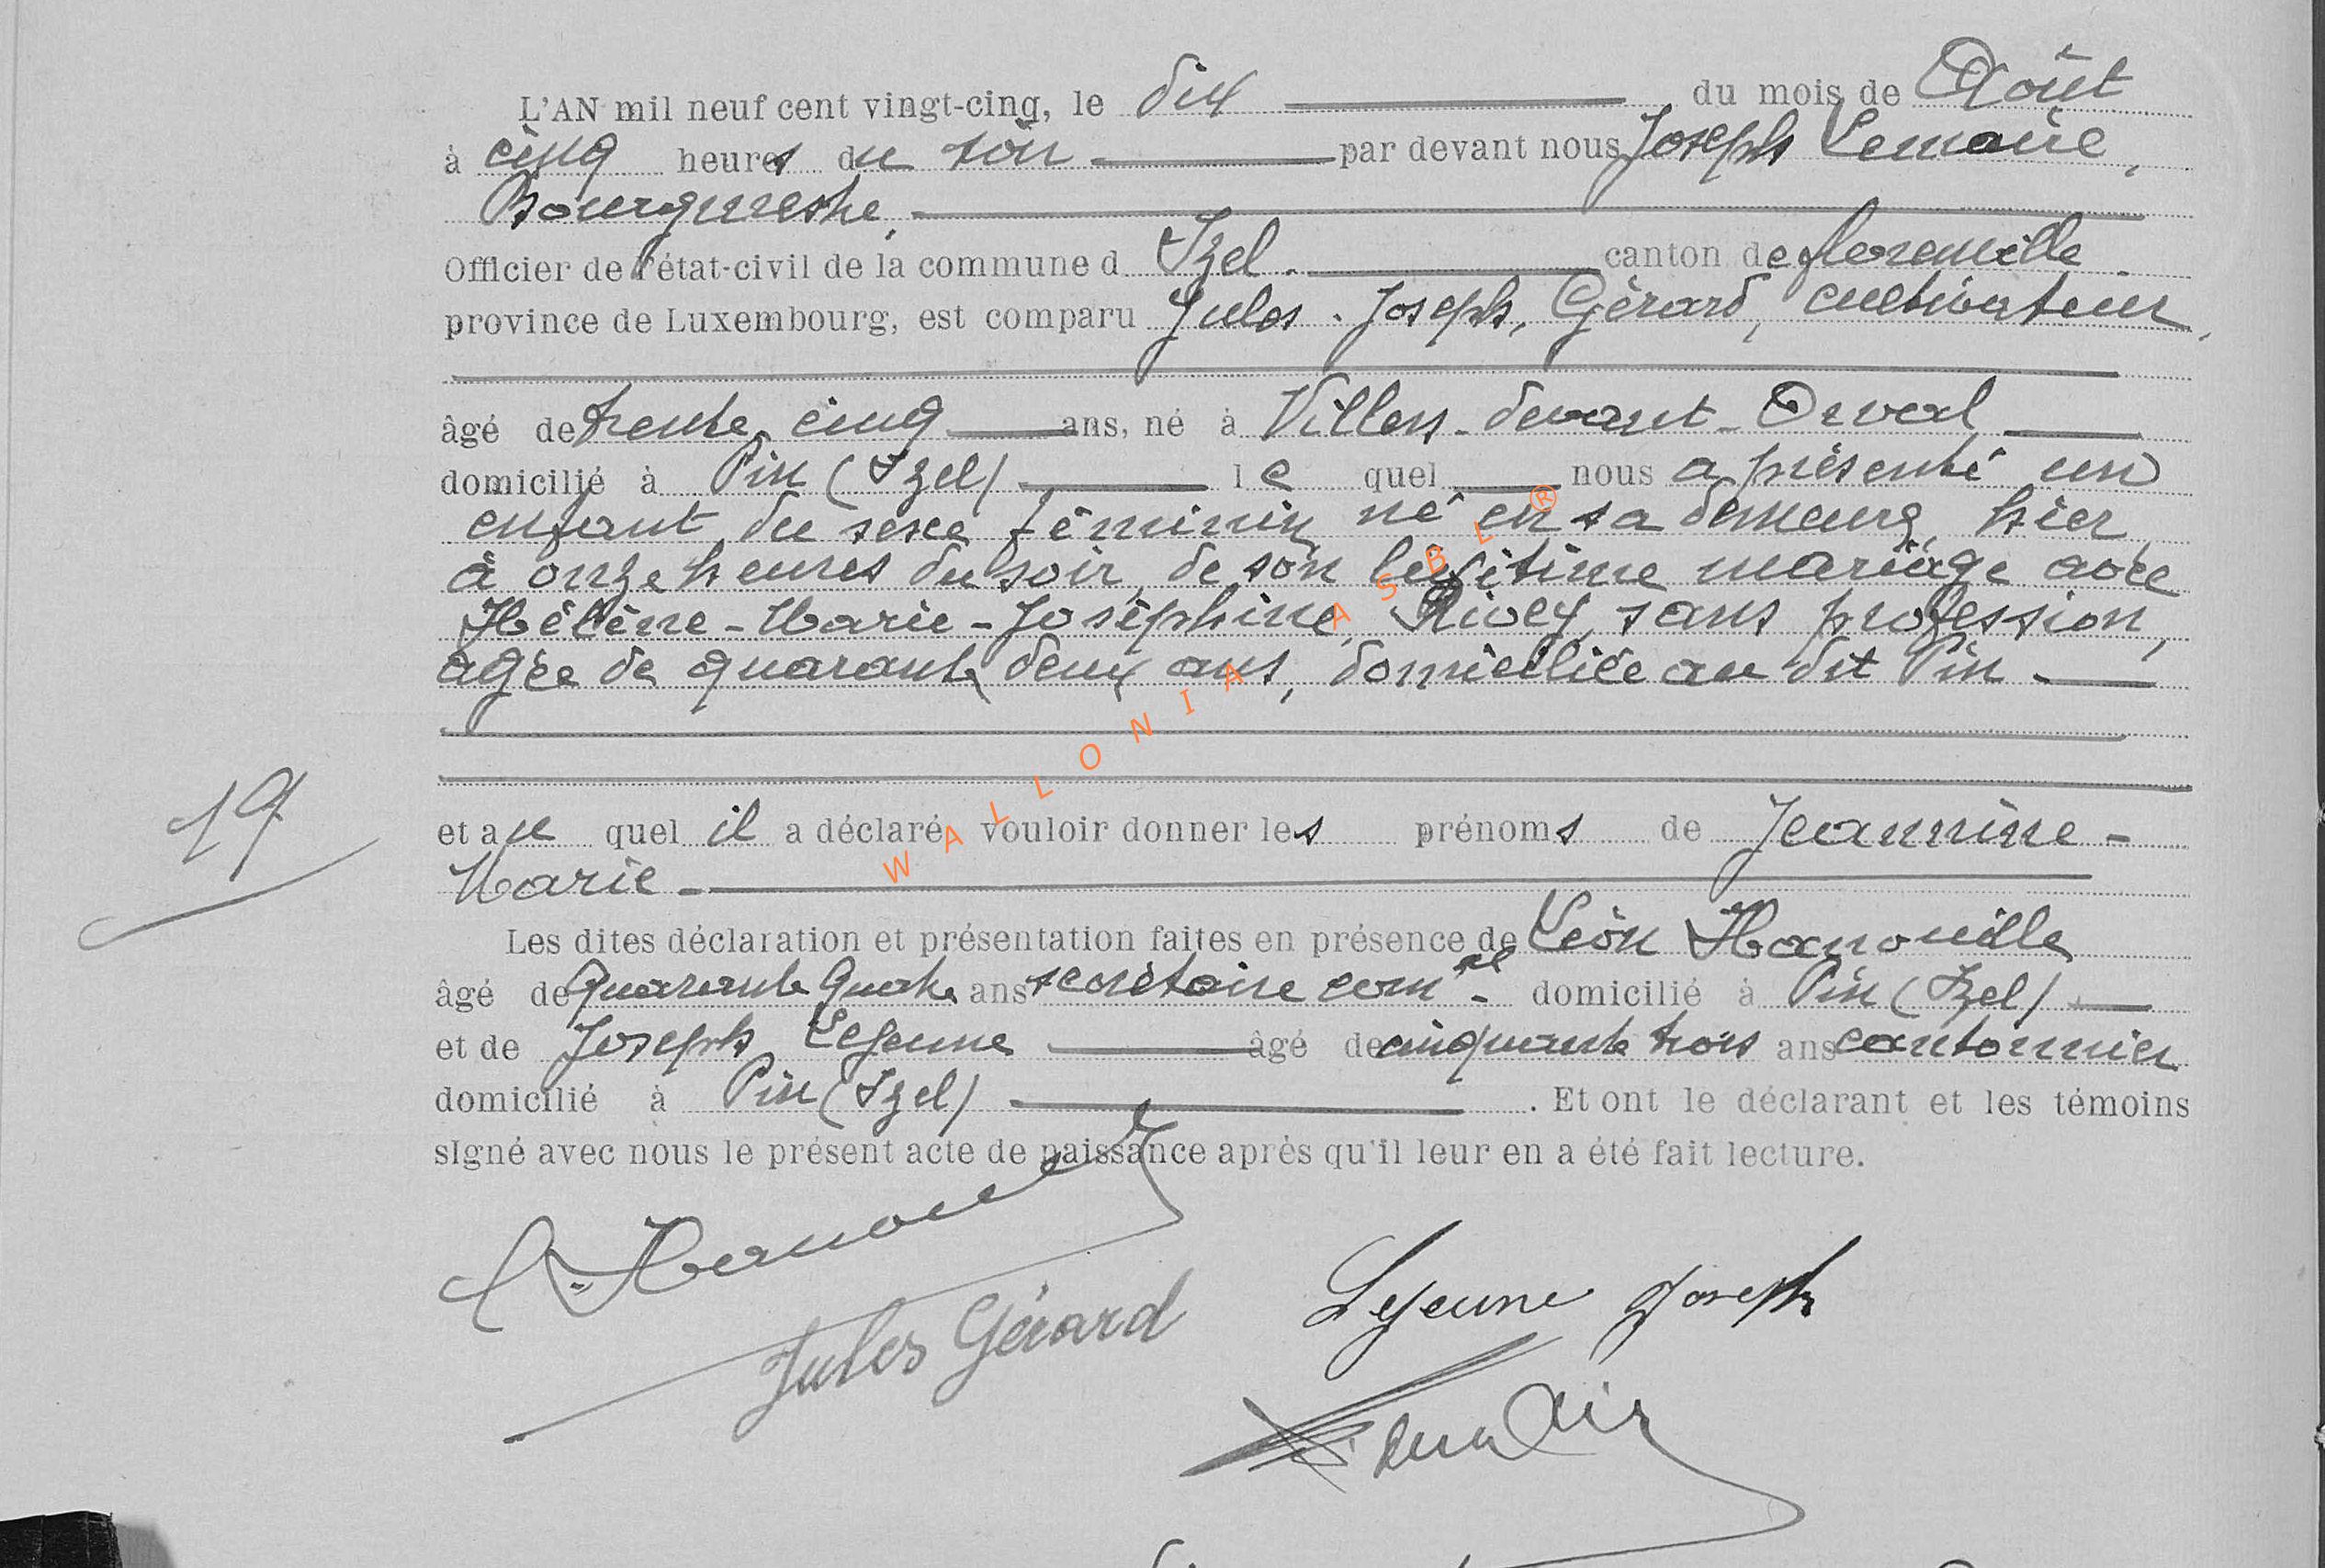 L'AN mil neuf cent vingt-cinq, le dix du mois de Août
à cinq heures du soir par devant nous Joseph Lemaire,
Bourgmestre,
Officier de l'état-civil de la commune d Izel. canton de florenville.
province de Luxembourg, est comparu Jules-Joseph, Gérard, cultivateur,
âgé de trente cinq ans, né à Villers-devant-Orval,
domicilié à Pin (Izel) le quel nous a présenté un
enfant du sexe féminin né en sa demeure, hier
à onze heures du soir, de son légitime mariage avec
Hélène-Marie-Joséphine, sans profession,
agée de quarante deux ans, domiciliée au dit Pin -
19
et au quel il a déclaré vouloir donner les prénoms de Jeannine-
Marie-
Les dites déclaration et présentation faites en présence de Léon Hanouille
âgé de quarante quatre ans secrétaire comal - domicilié à Pin (Izel)
et de Joseph Lejeune âgé de cinquante trois ans cantonnier
domicilié à Pin (Izel) . Et ont le déclarant et les témoins
signé avec nous le présent acte de naissance après qu'il leur en a été fait lecture.
Jules Gérard
Lejeune Joseph
WALLONIA ASBL ®